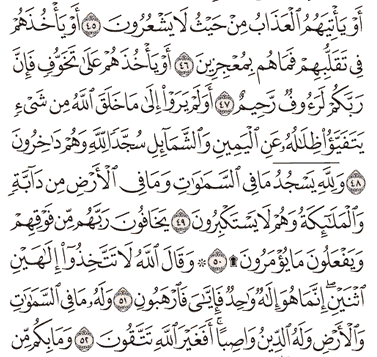 أَوْ يَأْتِيَهُمُ ٱلْعَذَابُ مِنْ حَيْثُ لَا يَشْعُرُونَ ۝٤٥ أَوْ يَأْخُذَهُمْ
فِى تَقَلُّبِهِمْ فَمَا هُم بِمُعْجِزِينَ ۝٤٦ أَوْ يَأْخُذَهُمْ عَلَىٰ تَخَوُّفٍ فَإِنَّ
رَبَّكُمْ لَرَءُوفٌ رَّحِيمٌ ۝٤٧ أَوَلَمْ يَرَوْا۟ إِلَىٰ مَا خَلَقَ ٱللَّهُ مِن شَىْءٍ
يَتَفَيَّؤُا۟ ظِلَـٰلُهُۥ عَنِ ٱلْيَمِينِ وَٱلشَّمَآئِلِ سُجَّدًا لِّلَّهِ وَهُمْ دَٰخِرُونَ
۝٤٨ وَلِلَّهِ يَسْجُدُ مَا فِى ٱلسَّمَـٰوَٰتِ وَمَا فِى ٱلْأَرْضِ مِن دَآبَّةٍ
وَٱلْمَلَـٰٓئِكَةُ وَهُمْ لَا يَسْتَكْبِرُونَ ۝٤٩ يَخَافُونَ رَبَّهُم مِّن فَوْقِهِمْ
وَيَفْعَلُونَ مَا يُؤْمَرُونَ ۩ ۝٥٠ ۞ وَقَالَ ٱللَّهُ لَا تَتَّخِذُوٓا۟ إِلَـٰهَيْنِ
ٱثْنَيْنِ ۖ إِنَّمَا هُوَ إِلَـٰهٌ وَٰحِدٌ فَإِيَّـٰىَ فَٱرْهَبُونِ ۝٥١ وَلَهُۥ مَا فِى ٱلسَّمَـٰوَٰتِ
وَٱلْأَرْضِ وَلَهُ ٱلدِّينُ وَاصِبًا ۚ أَفَغَيْرَ ٱللَّهِ تَتَّقُونَ ۝٥٢ وَمَا بِكُم مِّن